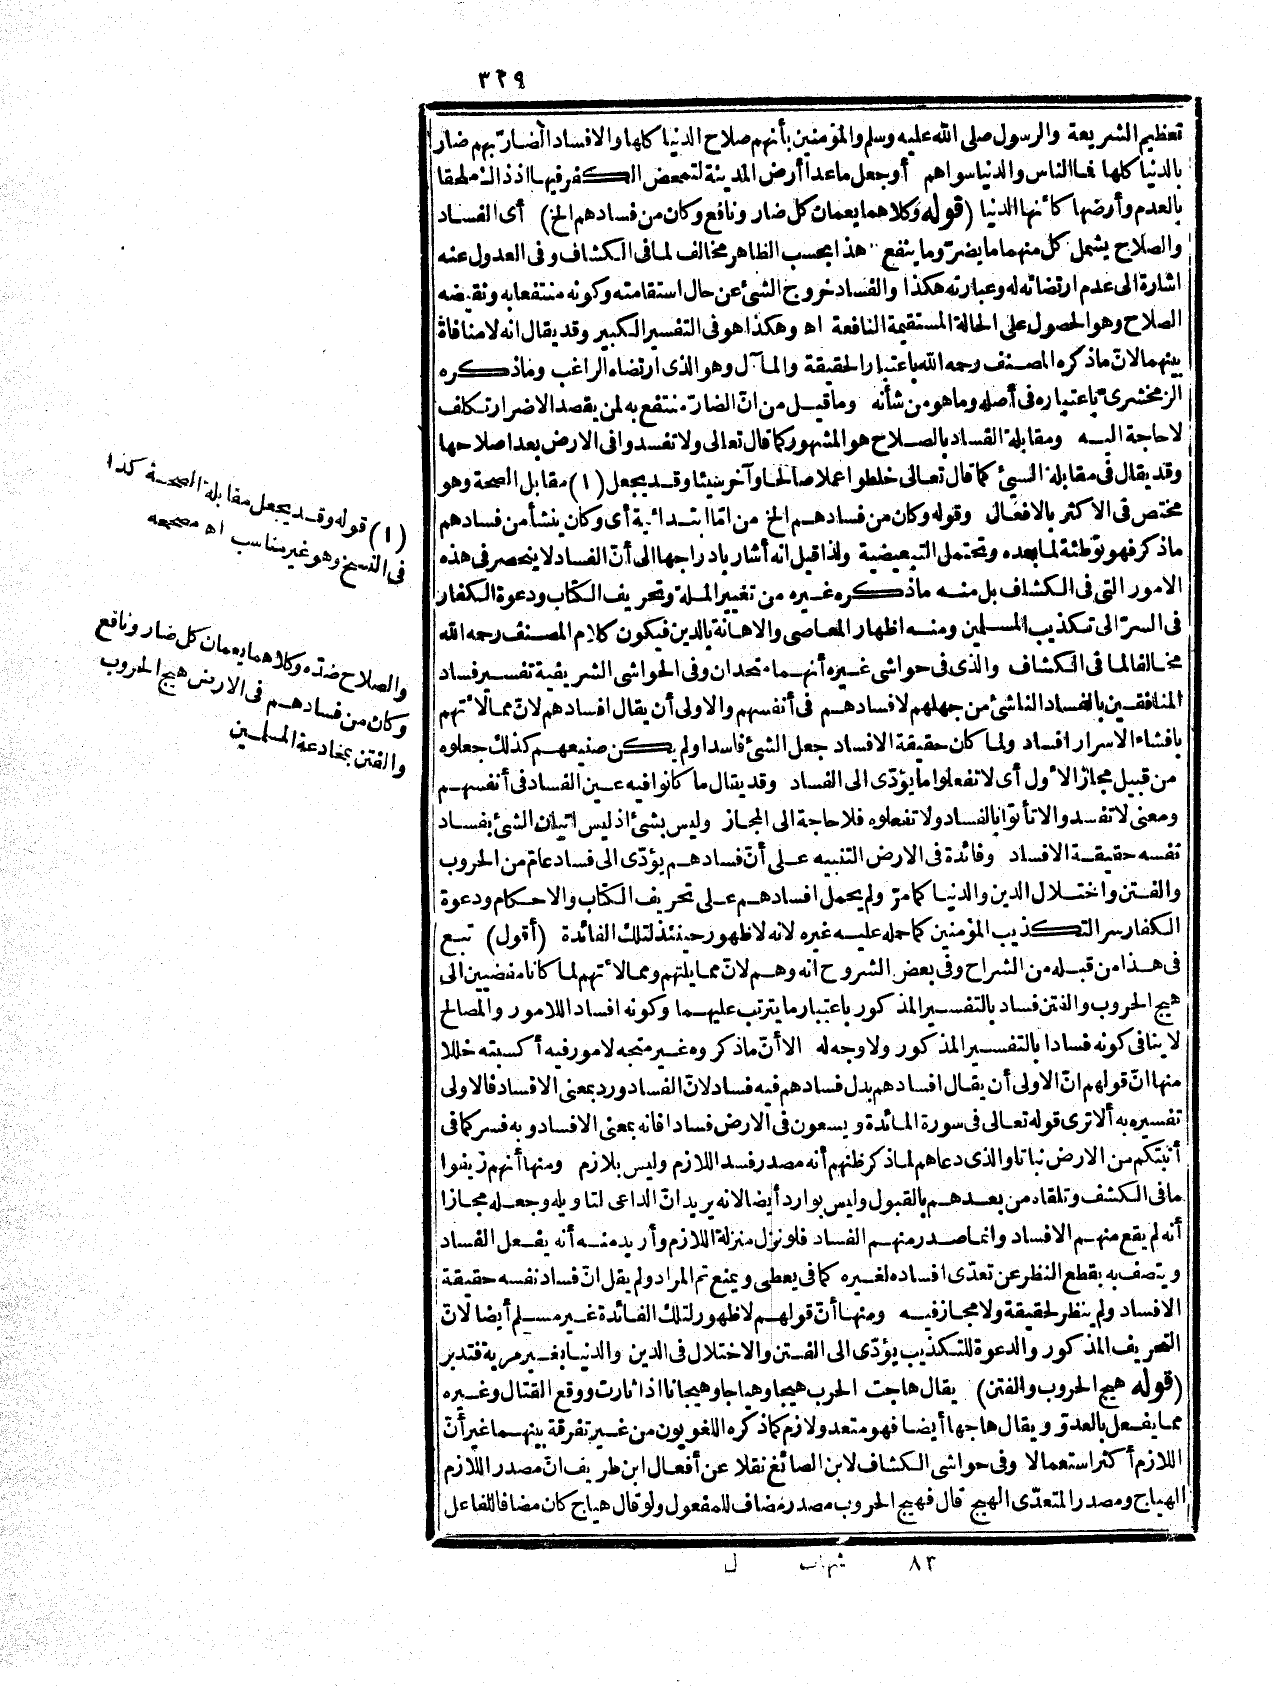 ٣٢٩
تعظيم الشريعة والرسول صلى الله عليه وسلم والمؤمنين بأنهم صلاح الدنيا كلها والافساد الضارّ بهم ضار
بالدنيا كلها فما الناس والدنيا سواهم أو جعل ما عدا أرض المدينة لتمحض الكفر فيها اذ ذاك ملحقا
بالعدم وأرضها كأنها الدنيا (قوله وكلاهما يعمان كل ضار ونافع وكان من فسادهم الخ) أى الفساد
والصلاح يشمل كل منهما ما يضرّ وما ينفع هذا بحسب الظاهر مخالف لما فى الكشاف وفى العدول عنه
اشارة الى عدم ارتضائه له وعبارته هكذا والفساد خروج الشئ عن حال استقامته وكونه منتفعا به ونقيضه
الصلاح وهو الحصول على الحالة المستقيمة النافعة اه وهكذا هو فى التفسير الكبير وقد يقال انه لا منافاة
بينهما لانّ ما ذكره المصنف رحمه الله باعتبار الحقيقة والمآل وهو الذى ارتضاه الراغب وما ذكره
الزمخشرىّ باعتباره فى أصله وما هو من شأنه وما قيل من انّ الضارّ منتفع به لمن يقصد الاضرار تكلف
لا حاجة اليه ومقابلة الفساد بالصلاح هو المشهور كما قال تعالى ولا تفسدوا فى الارض بعد اصلاحها
وقد يقال فى مقابلة السيئ كما قال تعالى خلطوا عملا صالحا وآخر سيئا وقد يجعل (١) مقابل الصحة وهو
مختص فى الاكثر بالافعال وقوله وكان من فسادهم الخ من امّا ابتدائية أى وكان ينشأ من فسادهم
ما ذكر فهو توطئة لما بعده وتحتمل التبعيضية ولذا قيل انه أشار بادراجها الى أنّ الفساد لا ينحصر فى هذه
الامور التى فى الكشاف بل منه ما ذكره غيره من تغيير الملة وتحريف الكتاب ودعوة الكفار
فى السرّ الى تكذيب المسلمين ومنه اظهار المعاصى والاهانة بالدين فيكون كلام المصنف رحمه الله
مخالفا لما فى الكشاف والذى فى حواشى غيره أنهما متحدان وفى الحواشى الشريفية تفسير فساد
المنافقين بالفساد الناشئ من جهلهم لا فسادهم فى أنفسهم والاولى أن يقال افسادهم لانّ ممالأتهم
بافشاء الاسرار افساد ولما كان حقيقة الافساد جعل الشئ فاسدا ولم يكن صنيعهم كذلك جعلوه
من قبيل مجاز الأول أى لا تفعلوا ما يؤدّى الى الفساد وقد يقال ما كانوا فيه عين الفساد فى أنفسهم
ومعنى لا تفسدوا لا تأتوا بالفساد ولا تفعلوه فلا حاجة الى المجاز وليس بشئ اذ ليس اتيان الشئ بفساد
نفسه حقيقة الافساد وفائدة فى الارض التنبيه على أنّ فسادهم يؤدّى الى فساد عامّ من الحروب
والفتن واختلال الدين والدنيا كما مرّ ولم يحمل افسادهم على تحريف الكتاب والاحكام ودعوة
الكفار سرا لتكذيب المؤمنين كما حمله عليه غيره لانه لا ظهور حينئذ لتلك الفائدة (أقول) تبع
فى هذا من قبله من الشراح وفى بعض الشروح انه وهم لانّ ممايلتهم وممالأتهم لما كانا مفضيين الى
هيج الحروب والفتن فساد بالتفسير المذكور باعتبار ما يترتب عليهما وكونه افسادا للامور والمصالح
لا ينافى كونه فسادا بالتفسير المذكور ولا وجه له الا أنّ ما ذكروه غير متجه لامور فيه أكسبته خللا
منها انّ قولهم انّ الاولى أن يقال افسادهم بدل فسادهم فيه فساد لانّ الفساد ورد بمعنى الافساد فالاولى
تفسيره به ألا ترى قوله تعالى فى سورة المائدة ويسعون فى الارض فسادا فانه بمعنى الافساد وبه فسر كما فى
أنبتكم من الارض نباتا والذى دعاهم لما ذكر ظنهم أنه مصدر فسد اللازم وليس بلازم ومنها أنهم زيفوا
ما فى الكشف وتلقاه من بعدهم بالقبول وليس بوارد أيضا لانه يريد انّ الداعى لتاويله وجعله مجازا
أنه لم يقع منهم الافساد وانما صدر منهم الفساد فلو نزل منزلة اللازم وأريد منه أنه يفعل الفساد
ويتصف به بقطع النظر عن تعدّى افساده لغيره كما فى يعطى ويمنع تم المراد ولم يقل انّ فساد نفسه حقيقة
الافساد ولم ينظر لحقيقة ولا مجاز فيه ومنها أنّ قولهم لا ظهور لتلك الفائدة غير مسلم أيضا لانّ
التحريف المذكور والدعوة للتكذيب يؤدّى الى الفتن والاختلال فى الدين والدنيا بغير مرية فتدبر
(قوله هيج الحروب والفتن) يقال هاجت الحرب هيجا وهياجا وهيجانا اذا ثارت ووقع القتال وغيره
مما يفعل بالعدوّ ويقال هاجها أيضا فهو متعد ولازم كما ذكره اللغويون من غير تفرقة بينهما غير أنّ
اللازم أكثر استعمالا وفى حواشى الكشاف لابن الصائغ نقلا عن أفعال ابن طريف انّ مصدر اللازم
الهياج ومصدر المتعدّى الهيج قال فهيج الحروب مصدر مضاف للمفعول ولو قال هياج كان مضافا للفاعل
(١) قوله وقد يجعل مقابلة الصحة كذا
فى النسخ وهو غير مناسب اه مصححه
والصلاح ضدّه وكلاهما يعمان كل ضار ونافع
وكان من فسادهم فى الارض هيج الحروب
والفتن بمخادعة المسلمين
٨٣ شهاب ل